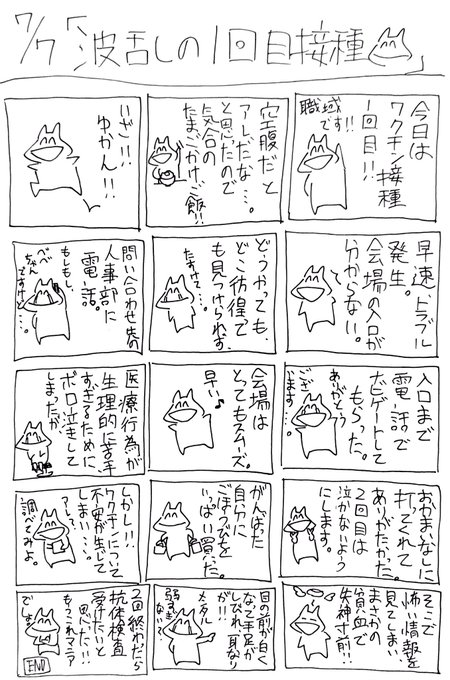 7/7「波乱の1回目接種」
今日は
ワクチン接種
1回目!!
職域です!!
空腹だと
アレだな…。
と思たので
気合の
たまごかけご飯!!
いざ!!
ゆかん!!
早速トラブル
発生。
会場の入口が
分からない。
どうやっても、
どこ彷徨で
も見つけられず。
たすけて…。
問い合わせ先の
人事部に
電話。
もしもし、
べべ
ちゃん
ですけど…。
入口まで
電話で
ナビゲートして
もらった。
ありがとう
ござい
ます…。
会場は
とってもスムーズ。
早い♪
医療行為が
生理的に苦手
すぎるために
ボロ泣きして
しまったが、
おかまいなしに
打ってくれて
ありがたかった。
2回目は
泣かないよう
にします。
がんばった
自分に
ごほうびを
いっぱい買った。
しかし!!
ワクチンについて
不安が生じて
しまい…。
調べてみよ。
そこで
怖い情報を
見てしまい、
まさかの
貧血で
失神寸前!!
目の前が白く
なて手足が
しびれ、耳なり
が!!
メンタル
弱すぎ
ない?
2回終わたら
抗体検査
受けたいと
思た!!!
もうこれマニア
でしょ。
END